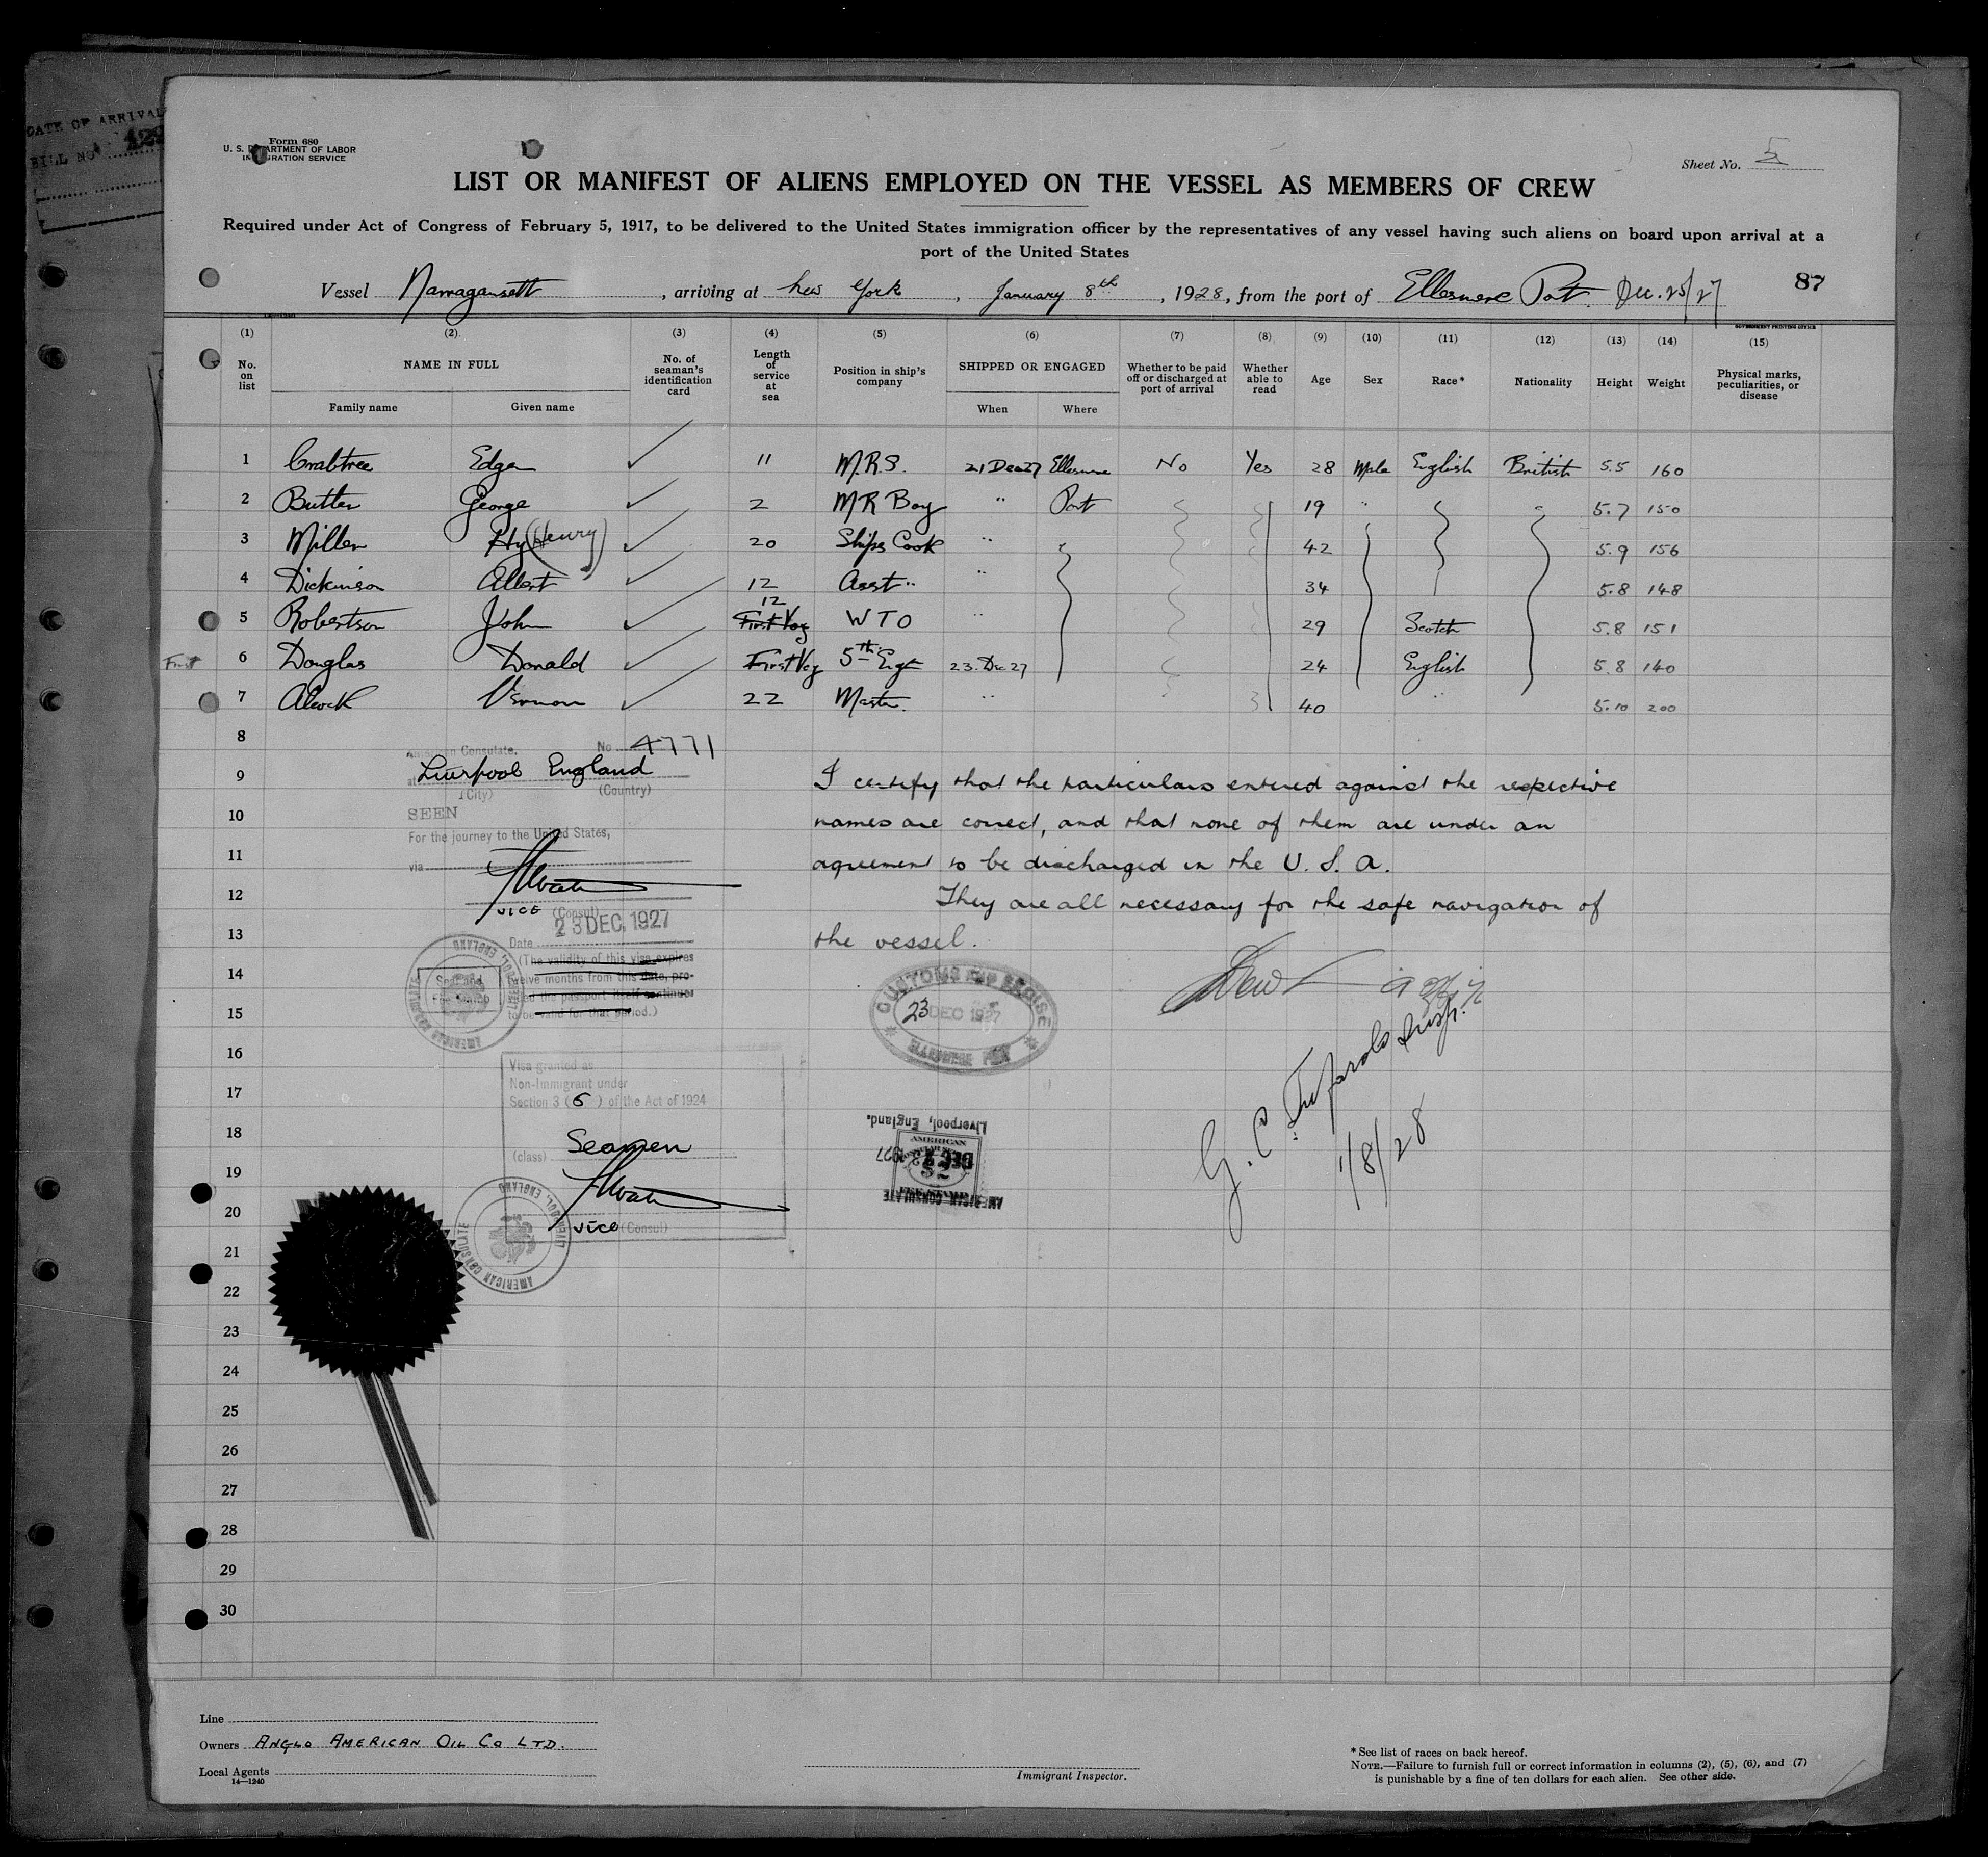 DATE OF ARRIVAL
BILL NO
Form 680
U. S. DEPARTMENT OF LABOR
IMMIGRATION SERVICE
Sheet No. 5
LIST OR MANIFEST OF ALIENS EMPLOYED ON THE VESSEL AS MEMBERS OF CREW
Required under Act of Congress of February 5, 1917, to be delivered to the United States immigration officer by the representatives of any vessel having such aliens on board upon arrival at a
port of the United States
Vessel Narragansett, arriving at New York, January 8th, 1928, from the port of Ellesmere Port. Dec. 25/27
87
GOVERNMENT PRINTING OFFICE
(1) (2) (3) (4) (5) (6) (7) (8) (9) (10) (11) (12) (13) (14) (15)
No. on list NAME IN FULL Family name Given name No. of seaman's identification card Length of service at sea Position in ship's company SHIPPED OR ENGAGED When Where Whether to be paid off or discharged at port of arrival Whether able to read Age Sex Race* Nationality Height Weight Physical marks, peculiarities, or disease
1 Crabtree Edgar ✓ 11 M.R.S. 21 Dec 27 Ellesmere No Yes 28 Male English British 5.5 160
2 Butler George ✓ 2 M R Boy " Port 19 " 5.7 150
3 Miller Hy (Henry) ✓ 20 Ships Cook " 42 5.9 156
4 Dickinson Albert ✓ 12 Asst " " 34 5.8 148
12
5 Robertson John ✓ First Voy W T O " 29 Scotch 5.8 151
First 6 Douglas Donald ✓ First Voy 5th Engr 23. Dec 27 24 English 5.8 140
7 Alcock Vernon ✓ 22 Master. " 40 " 5.10 200
8
American Consulate. No 4771
9 at Liverpool England
(City) (Country)
I certify that the particulars entered against the respective
10 SEEN
names are correct, and that none of them are under an
For the journey to the United States,
11 via
agreement to be discharged in the U. S. A.
12
They are all necessary for the safe navigation of
VICE (Consul)
13 Date 23 DEC. 1927
the vessel.
(The validity of this visa expires
14 twelve months from this date, pro-
vided the passport itself continues
15 to be valid for that period.)
Seal and
Fee Stamp
AMERICAN CONSULATE LIVERPOOL, ENGLAND
CUSTOMS AND EXCISE
23 DEC 1927
ELLESMERE PORT
16
Visa granted as
Non-Immigrant under
17 Section 3 (5) of the Act of 1924
18 (class) Seamen
19
20 VICE (Consul)
AMERICAN CONSULATE LIVERPOOL, ENGLAND
Liverpool, England.
AMERICAN
DEC 23 1927
AMERICAN CONSULATE
G. C.
Insp.
1/8/28
21
22
23
24
25
26
27
28
29
30
Line
Owners ANGLO AMERICAN OIL CO LTD.
Local Agents
14—1240
Immigrant Inspector.
* See list of races on back hereof.
NOTE.—Failure to furnish full or correct information in columns (2), (5), (6), and (7)
is punishable by a fine of ten dollars for each alien. See other side.